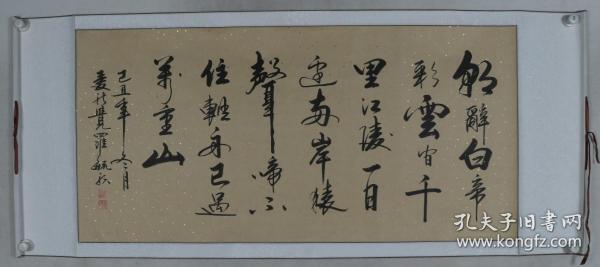 朝辭白帝
彩雲間千
里江陵一日
還兩岸猿
聲啼不
住輕舟已過
萬重山
己丑年冬月
愛新覺羅毓
孔夫子旧书网
www.kongfz.com